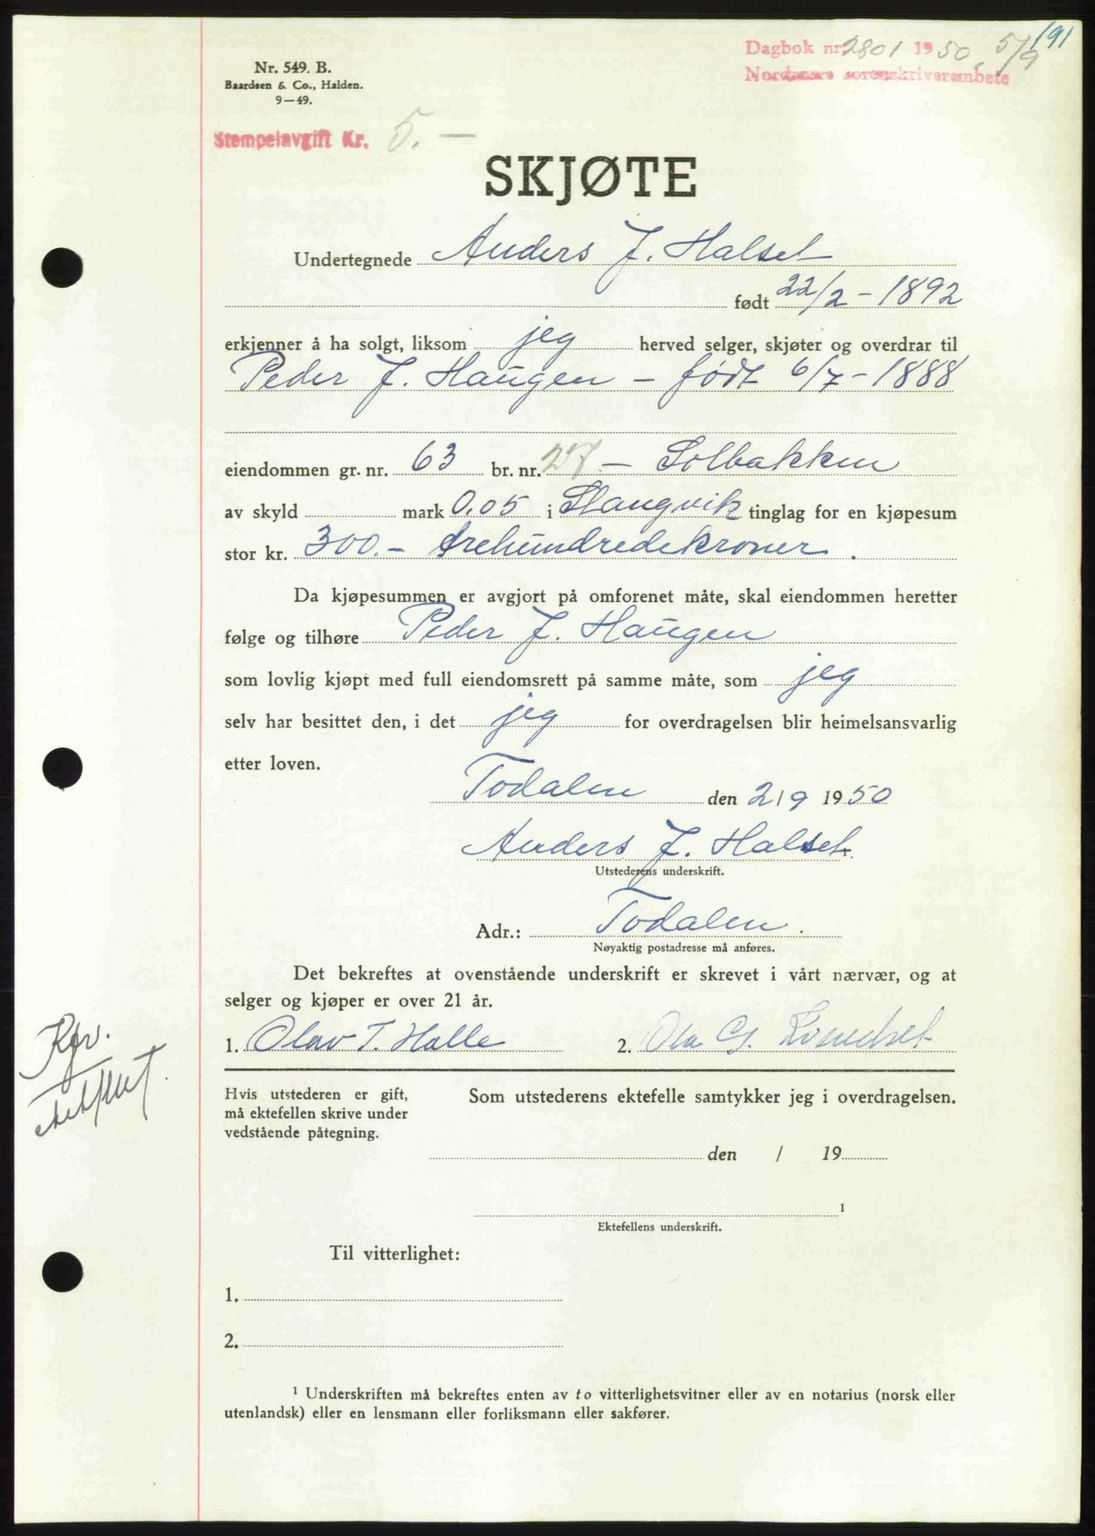 191
Dagbok nr. 2801 1950. 5/9
Nordmøre sorenskriverembete
Nr. 549. B.
Baardsen & Co., Halden.
9—49.
Stempelavgift Kr. 5.—
SKJØTE
Undertegnede Anders J. Halset
født 22/2 - 1892
erkjenner å ha solgt, liksom jeg herved selger, skjøter og overdrar til
Peder J. Haugen - født 6/7 - 1888
eiendommen gr. nr. 63 br. nr. 27. - Solbakken
av skyld mark 0,05 i Stangvik tinglag for en kjøpesum
stor kr. 300.- trehundredekroner.
Da kjøpesummen er avgjort på omforenet måte, skal eiendommen heretter
følge og tilhøre Peder J. Haugen
som lovlig kjøpt med full eiendomsrett på samme måte, som jeg
selv har besittet den, i det jeg for overdragelsen blir heimelsansvarlig
etter loven.
Todalen den 2/9 1950
Anders J. Halset.
Utstederens underskrift.
Adr.: Todalen.
Nøyaktig postadresse må anføres.
Det bekreftes at ovenstående underskrift er skrevet i vårt nærvær, og at
selger og kjøper er over 21 år.
1. Olav T. Halle 2. Ola G.
Kfr.
Hvis utstederen er gift,
må ektefellen skrive under
vedstående påtegning.
Som utstederens ektefelle samtykker jeg i overdragelsen.
den / 19
1
Ektefellens underskrift.
Til vitterlighet:
1.
2.
1 Underskriften må bekreftes enten av to vitterlighetsvitner eller av en notarius (norsk eller
utenlandsk) eller en lensmann eller forliksmann eller sakfører.